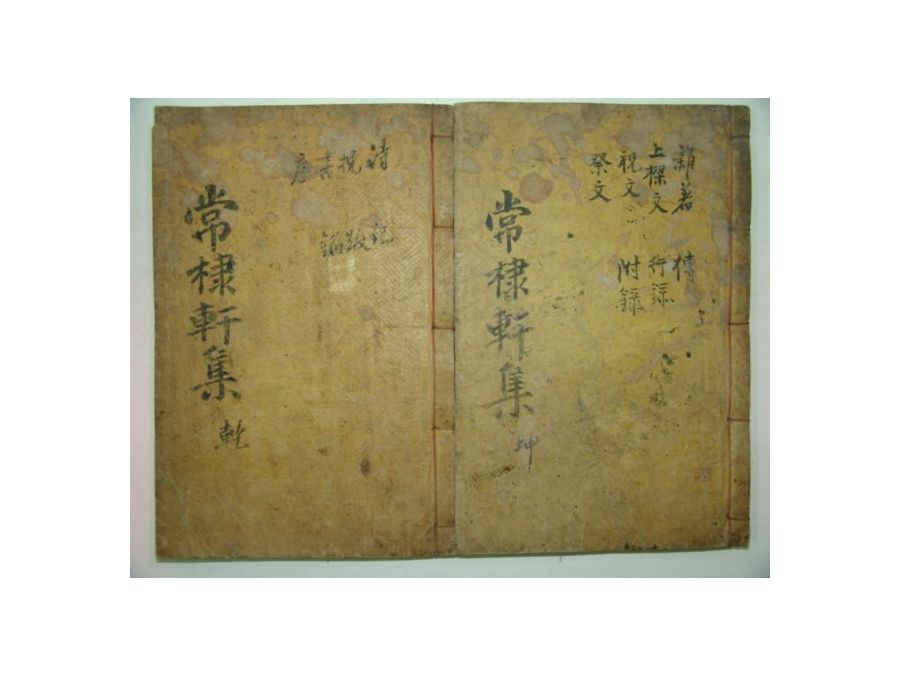 雜著 傳
上樑文 行錄
祝文 附錄
祭文
常棣軒集
坤
詩 記
挽 跋
書
序
常棣軒集
乾